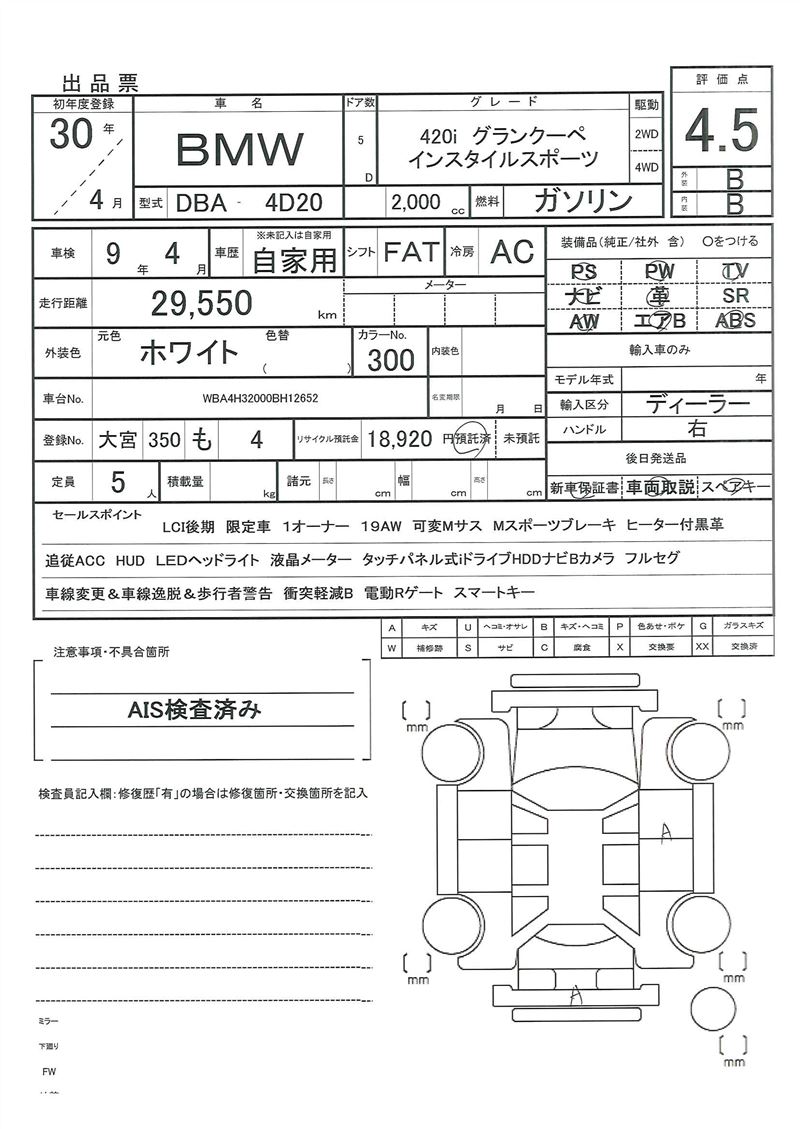 出品票
初年度登録 車名 ドア数 グレード 駆動 評価点
30年 BMW 5 D 420i グランクーペ 2WD 4.5
インスタイルスポーツ 4WD
外装 B
4月 型式 DBA - 4D20 2,000 cc 燃料 ガソリン 内装 B
車検 9年 4月 車歴 ※未記入は自家用 自家用 シフト FAT 冷房 AC 装備品(純正/社外 含) 〇をつける
PS PW TV
走行距離 29,550 km メーター ナビ 革 SR
AW エアB ABS
外装色 元色 ホワイト 色替 ( ) カラーNo. 300 内装色 輸入車のみ
モデル年式 年
車台No. WBA4H32000BH12652 名変期限 月 日 輸入区分 ディーラー
登録No. 大宮 350 も 4 リサイクル預託金 18,920 円預託済 未預託 ハンドル 右
後日発送品
定員 5人 積載量 kg 諸元 長さ cm 幅 cm 高さ cm 新車保証書 車両取説 スペアキー
セールスポイント
LCI後期 限定車 1オーナー 19AW 可変Mサス Mスポーツブレーキ ヒーター付黒革
追従ACC HUD LEDヘッドライト 液晶メーター タッチパネル式iドライブHDDナビBカメラ フルセグ
車線変更&車線逸脱&歩行者警告 衝突軽減B 電動Rゲート スマートキー
A キズ U ヘコミ・オサレ B キズ・ヘコミ P 色あせ・ボケ G ガラスキズ
W 補修跡 S サビ C 腐食 X 交換要 XX 交換済
注意事項・不具合箇所
AIS検査済み
検査員記入欄:修復歴「有」の場合は修復箇所・交換箇所を記入
[ ] mm [ ] mm
A
[ ] mm [ ] mm
A
[ ] mm
ミラー
下廻り
FW